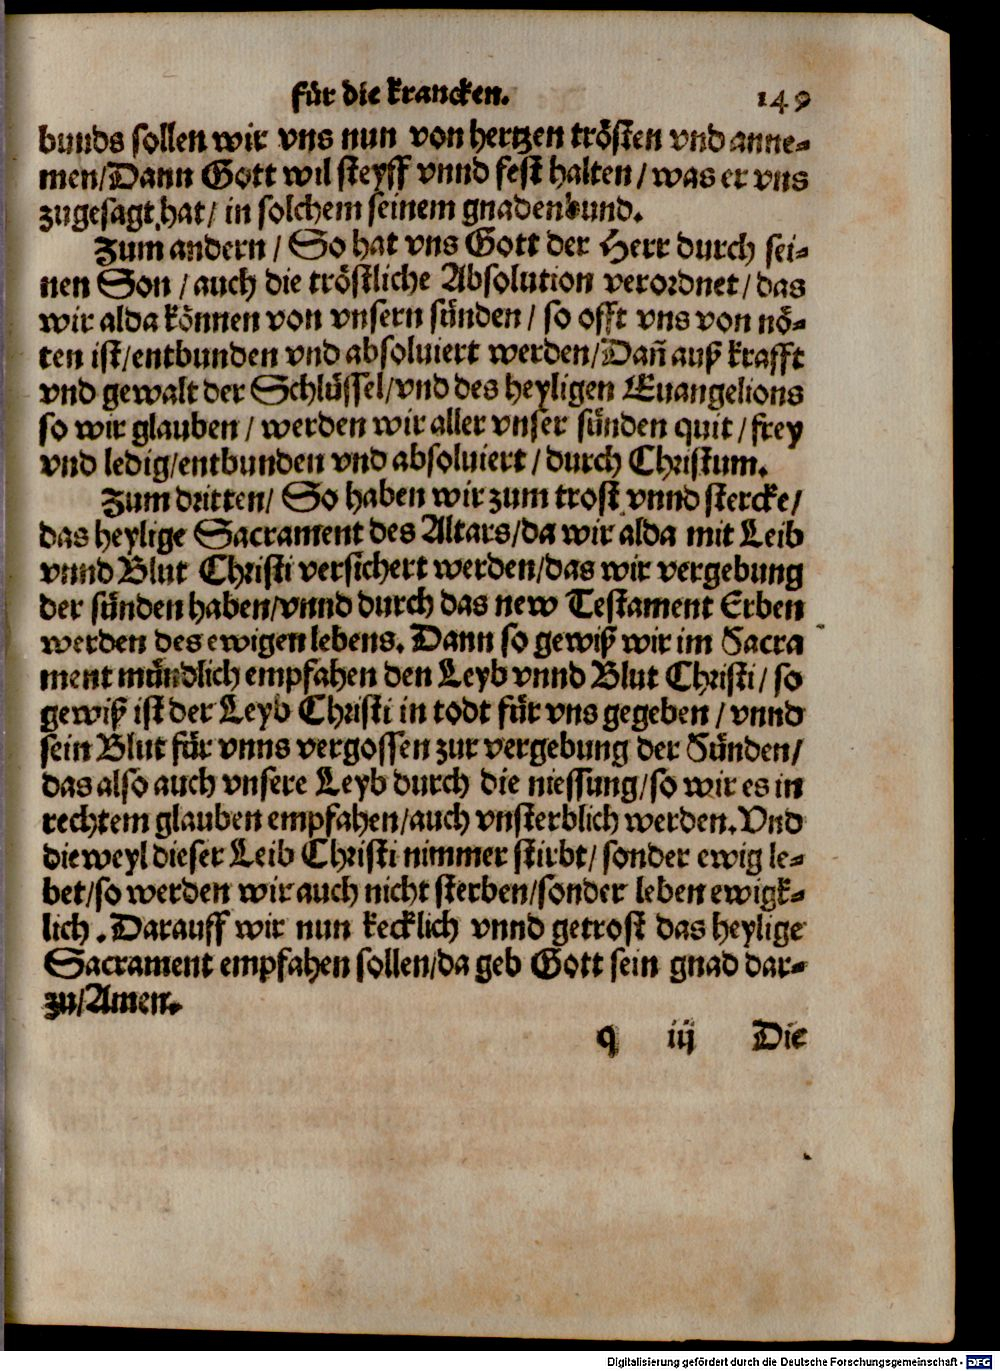 für die krancken. 149
bunds sollen wir vns nun von hertzen trösten vnd anne-
men/Dann Gott wil steyff vnnd fest halten/was er vns
zugesagt hat/ in solchem seinem gnadenbund.
Zum andern/ So hat vns Gott der Herr durch sei-
nen Son/auch die tröstliche Absolution verordnet/das
wir alda können von vnsern sünden/ so offt vns von nö-
ten ist/entbunden vnd absoluiert werden/Dañ auß krafft
vnd gewalt der Schlüssel/vnd des heyligen Euangelions
so wir glauben/ werden wir aller vnser sünden quit/frey
vnd ledig/entbunden vnd absoluiert/durch Christum.
Zum dritten/ So haben wir zum trost vnnd stercke/
das heylige Sacrament des Altars/da wir alda mit Leib
vnnd Blut Christi versichert werden/das wir vergebung
der sünden haben/vnnd durch das new Testament Erben
werden des ewigen lebens. Dann so gewiß wir im Sacra
ment mündlich empfahen den Leyb vnnd Blut Christi/ so
gewiß ist der Leyb Christi in todt für vns gegeben/vnnd
sein Blut für vnns vergossen zur vergebung der Sünden/
das also auch vnsere Leyb durch die niessung/so wir es in
rechtem glauben empfahen/auch vnsterblich werden. Vnd
dieweyl dieser Leib Christi nimmer stirbt/ sonder ewig le-
bet/so werden wir auch nicht sterben/sonder leben ewigk-
lich. Darauff wir nun kecklich vnnd getrost das heylige
Sacrament empfahen sollen/da geb Gott sein gnad dar-
zu/Amen.
q iij Die
Digitalisierung gefördert durch die Deutsche Forschungsgemeinschaft - DFG